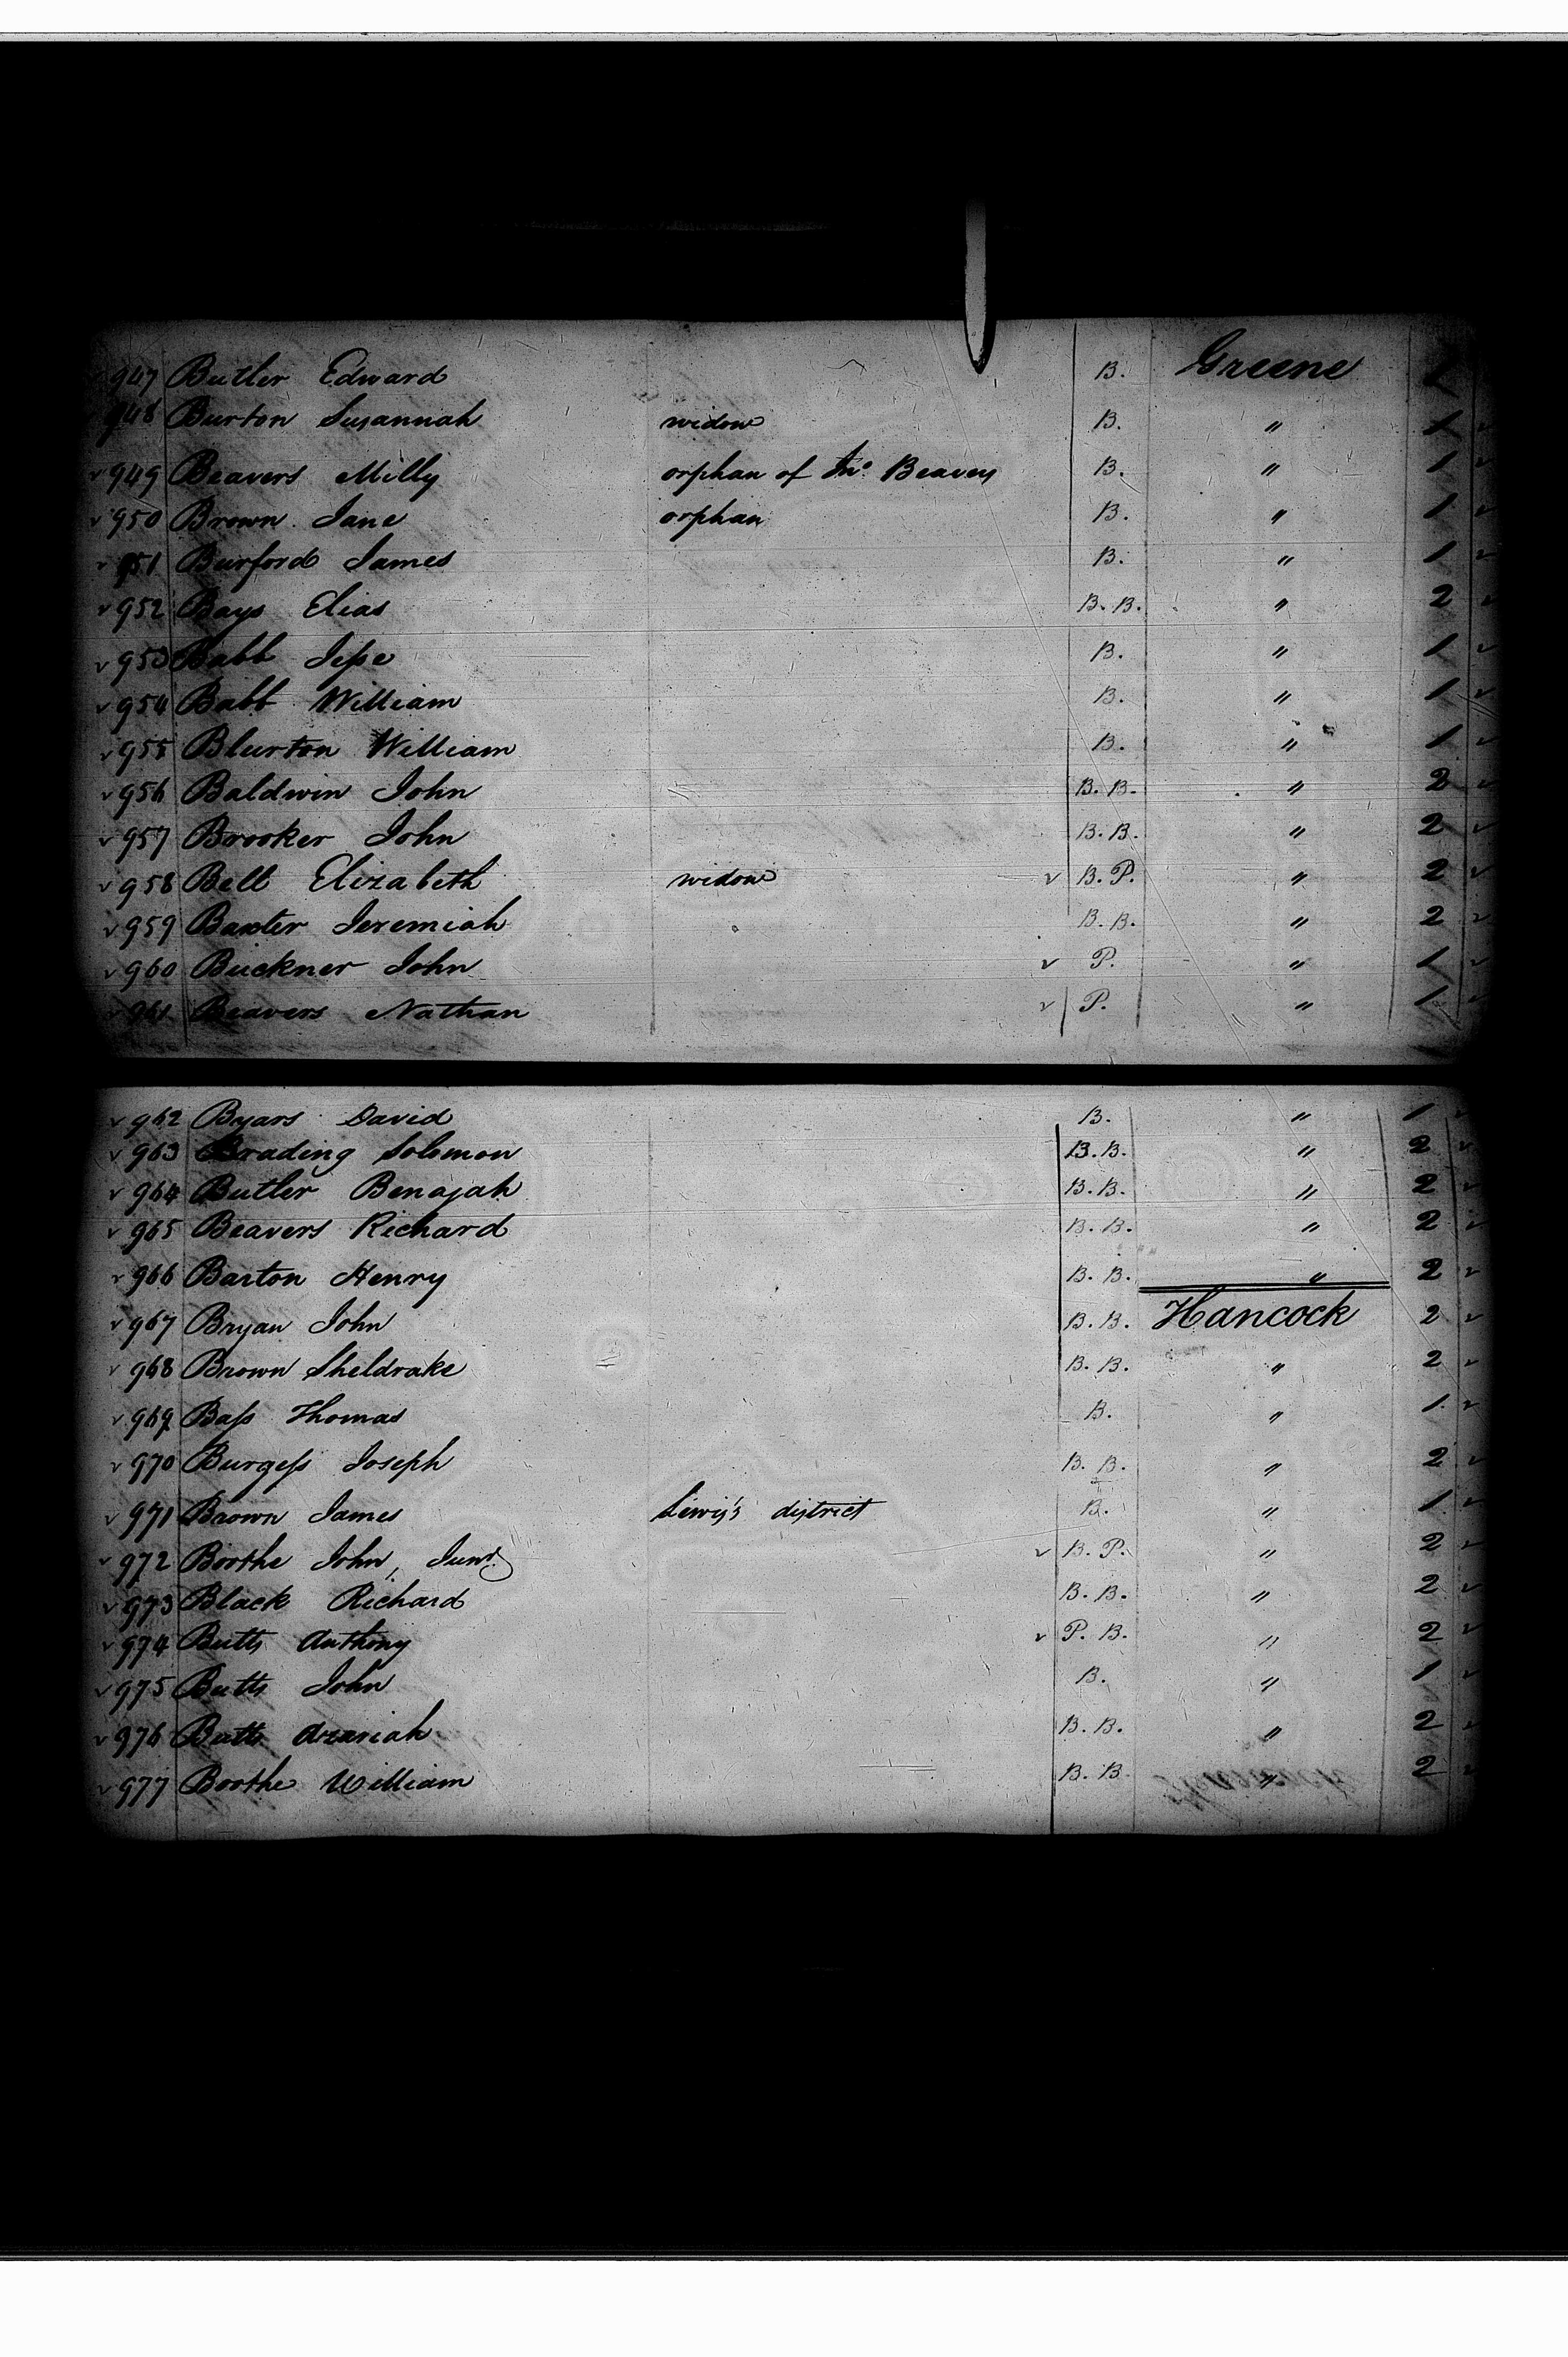 947 Butler Edward B. Greene 1
948 Burton Susannah widow B. " 1
949 Beavers Milly orphan of Jno. Beavers B. " 1
950 Brown Jane orphan B. " 1
951 Burford James B. " 1
952 Bays Elias B. B. " 2
953 Babb Jesse B. " 1
954 Babb William B. " 1
955 Blurton William B. " 1
956 Baldwin John B. B. " 2
957 Brooker John B. B. " 2
958 Bell Elizabeth widow B. P. " 2
959 Baxter Jeremiah B. B. " 2
960 Buckner John P. " 1
961 Beavers Nathan P. " 1
962 Byars David B. " 1
963 Brading Solomon B. B. " 2
964 Butler Benajah B. B. " 2
965 Beavers Richard B. B. " 2
966 Barton Henry B. B. " 2
967 Bryan John B. B. Hancock 2
968 Brown Sheldrake B. B. " 2
969 Bass Thomas B. " 1
970 Burgess Joseph B. B. " 2
971 Brown James Lewis's district B. " 1
972 Boothe John, Junr. B. P. " 2
973 Black Richard B. B. " 2
974 Butts Anthony P. B. " 2
975 Butts John B. " 1
976 Butts Azariah B. B. " 2
977 Boothe William B. B. " 2